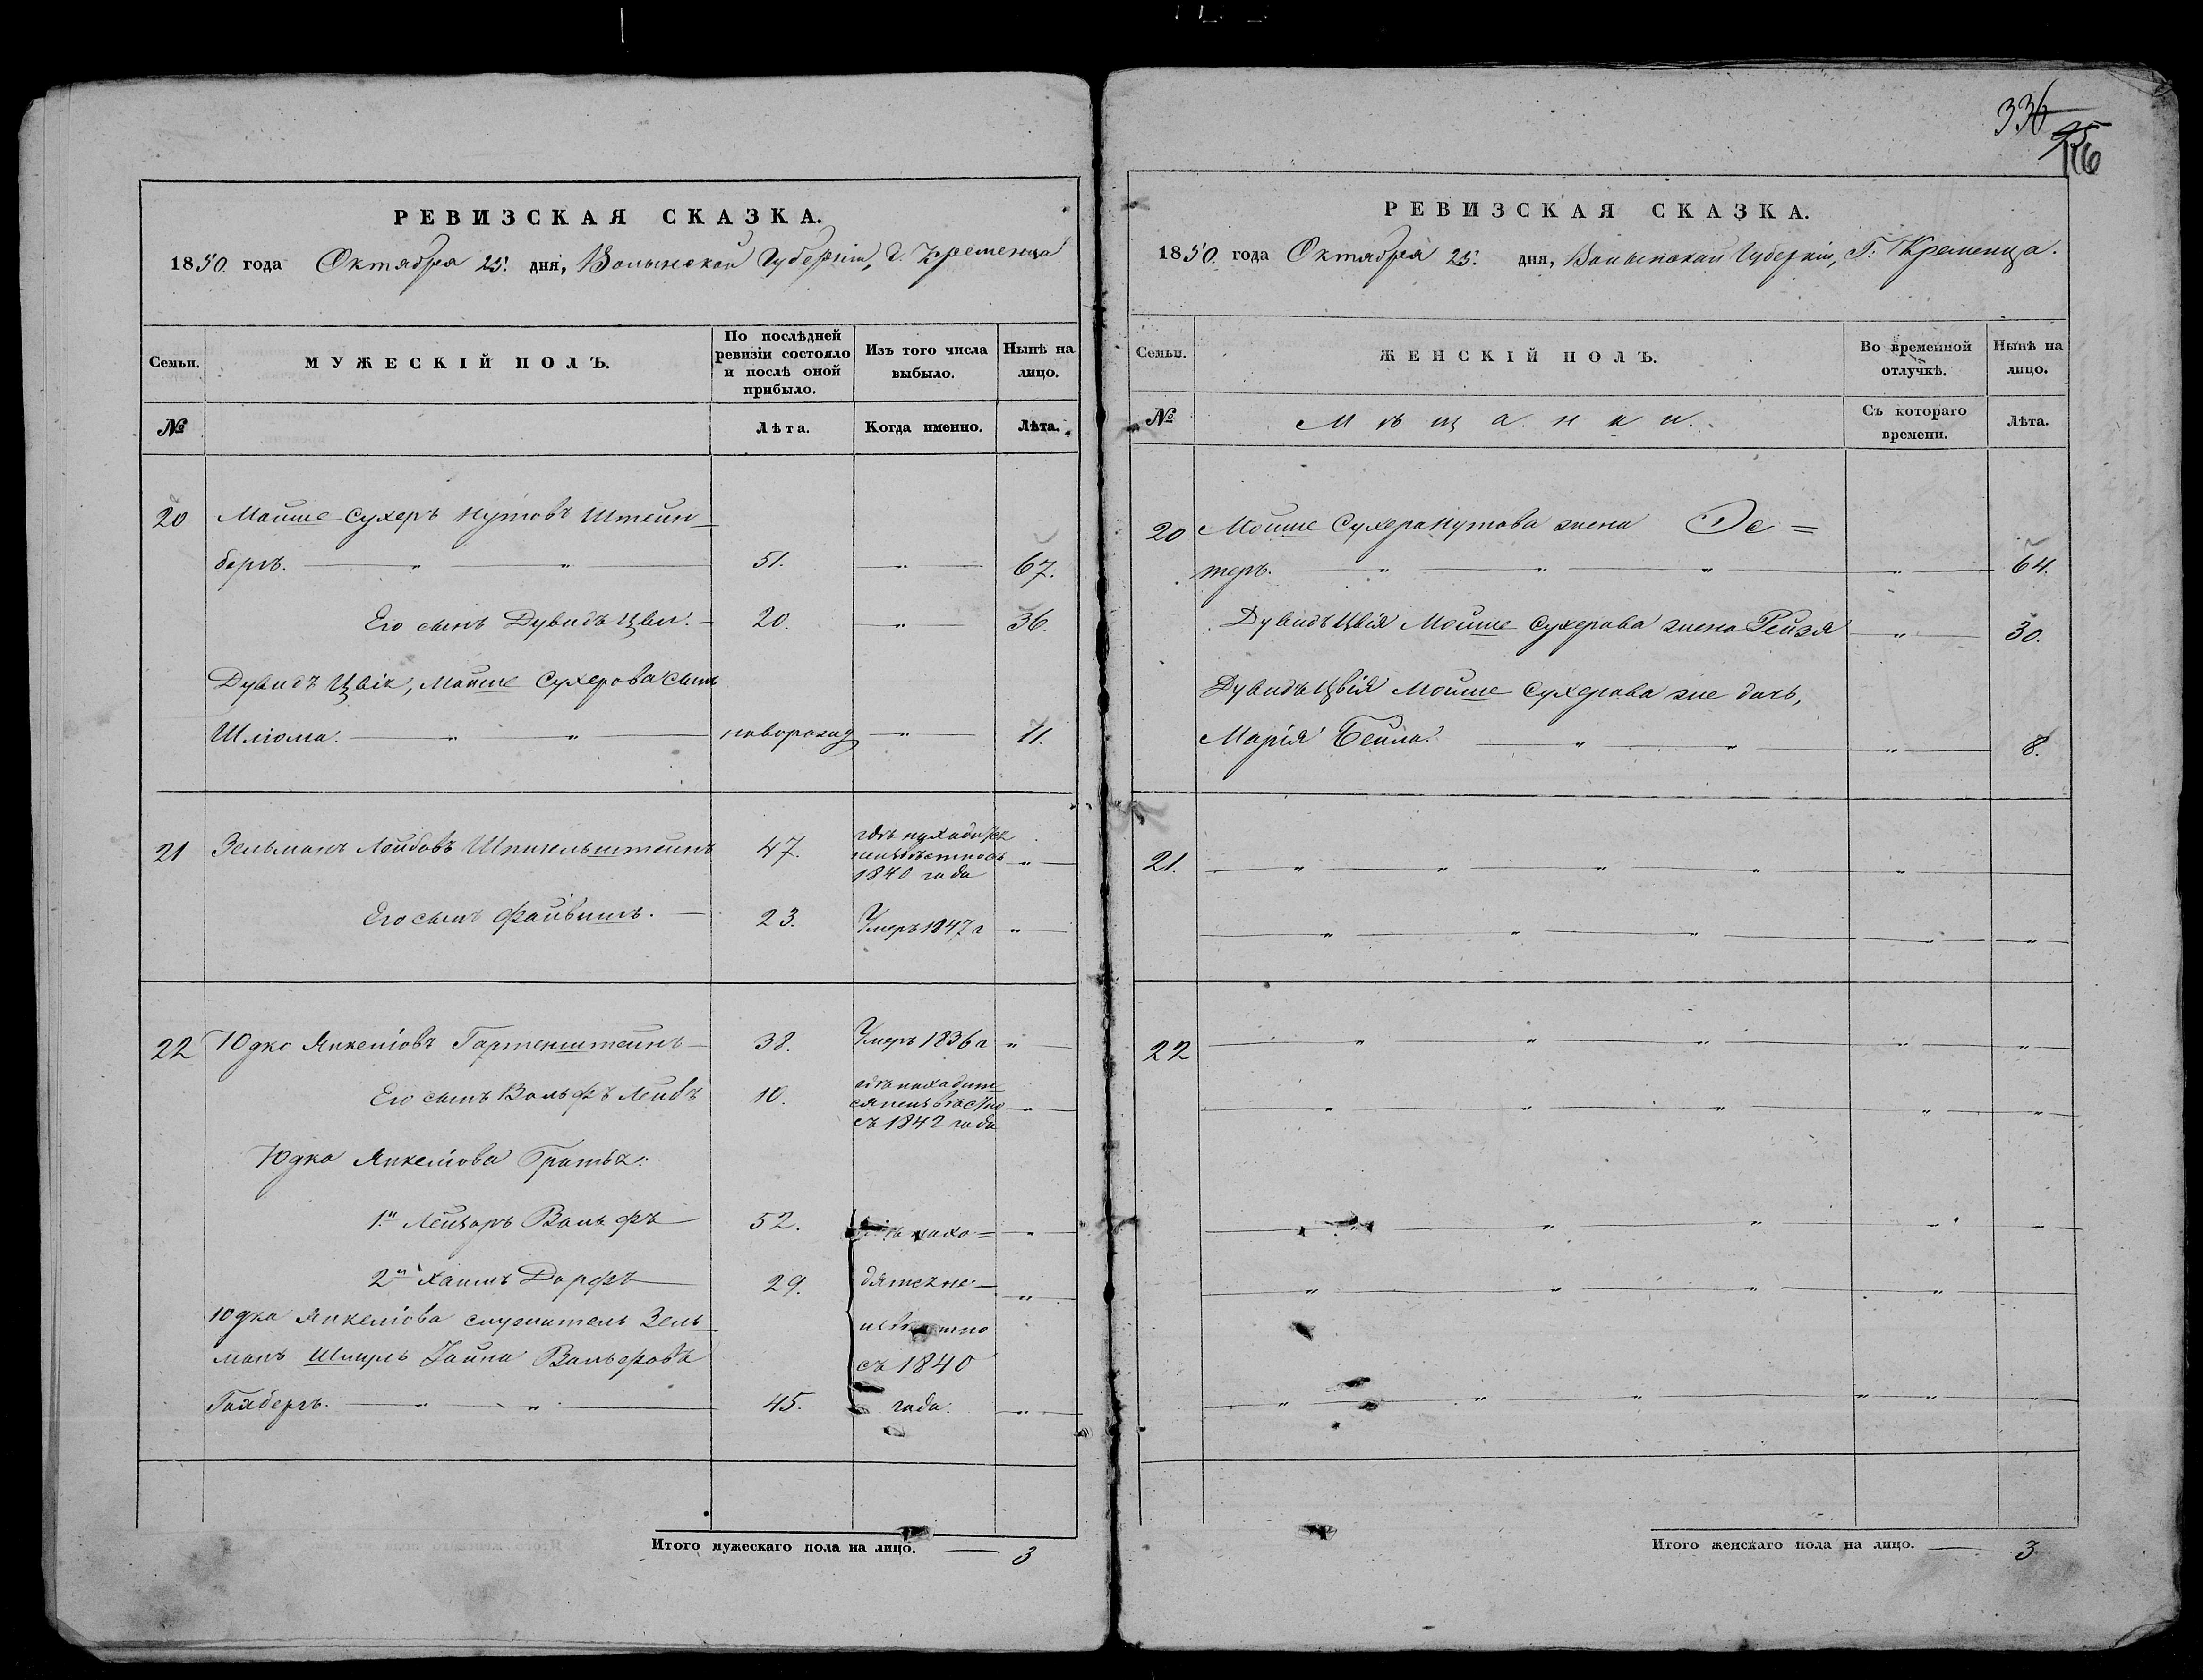 336
РЕВИЗСКАЯ СКАЗКА.
1850 года Октября 25. дня, Волынской Губерніи, г. Кременца
Семьи.
МУЖЕСКІЙ ПОЛЪ.
По послѣдней ревизіи состояло и послѣ оной прибыло.
Изъ того числа выбыло.
Нынѣ на лицо.
№
Лѣта.
Когда именно.
Лѣта.
20 Мойше Сухеръ Нутовъ Штейн-
бергъ. 51. 67.
Его сынъ Дувидъ Цви. 20. 36.
Дувидъ Цвія, Мойше Сухерова сынъ
Шліома. новорожд 11.
21 Зельманъ Лейбовъ Шпигельштейнъ 47. гдѣ находится
неизвѣстно съ
1840 года
Его сынъ Файвишъ. 23. Умеръ 1847 г
22 Юдко Янкеліовъ Гортенштейнъ 38. Умеръ 1836 г
Его сынъ Вольфъ Лейбъ 10. гдѣ находит
ся неизвѣстно
съ 1842 года
Юдка Янкеліова Братья:
1й Лейзоръ Вольфъ 52. гдѣ нахо=
2й Хаимъ Дорфъ 29. дятся не-
Юдка Янкеліова служитель Зель
извѣстно
манъ Шмуль Вольфовъ
съ 1840
45. года.
Итого мужескаго пола на лицо. 3
РЕВИЗСКАЯ СКАЗКА.
1850 года Октября 25. дня, Волынской Губерніи, Г. Кременца.
Семьи.
ЖЕНСКІЙ ПОЛЪ.
Во временной отлучкѣ.
Нынѣ на лицо.
№
Мѣщанки.
Съ котораго времени.
Лѣта.
20 Мойше Сухера Нутова жена Эс=
теръ. 64.
Дувидъ Цвія Мойше Сухерова жена Рейзя 30.
Дувидъ Цвія Мойше Сухерова же дочь,
Марія Бейла. 8.
21.
22
Итого женскаго пола на лицо. 3.